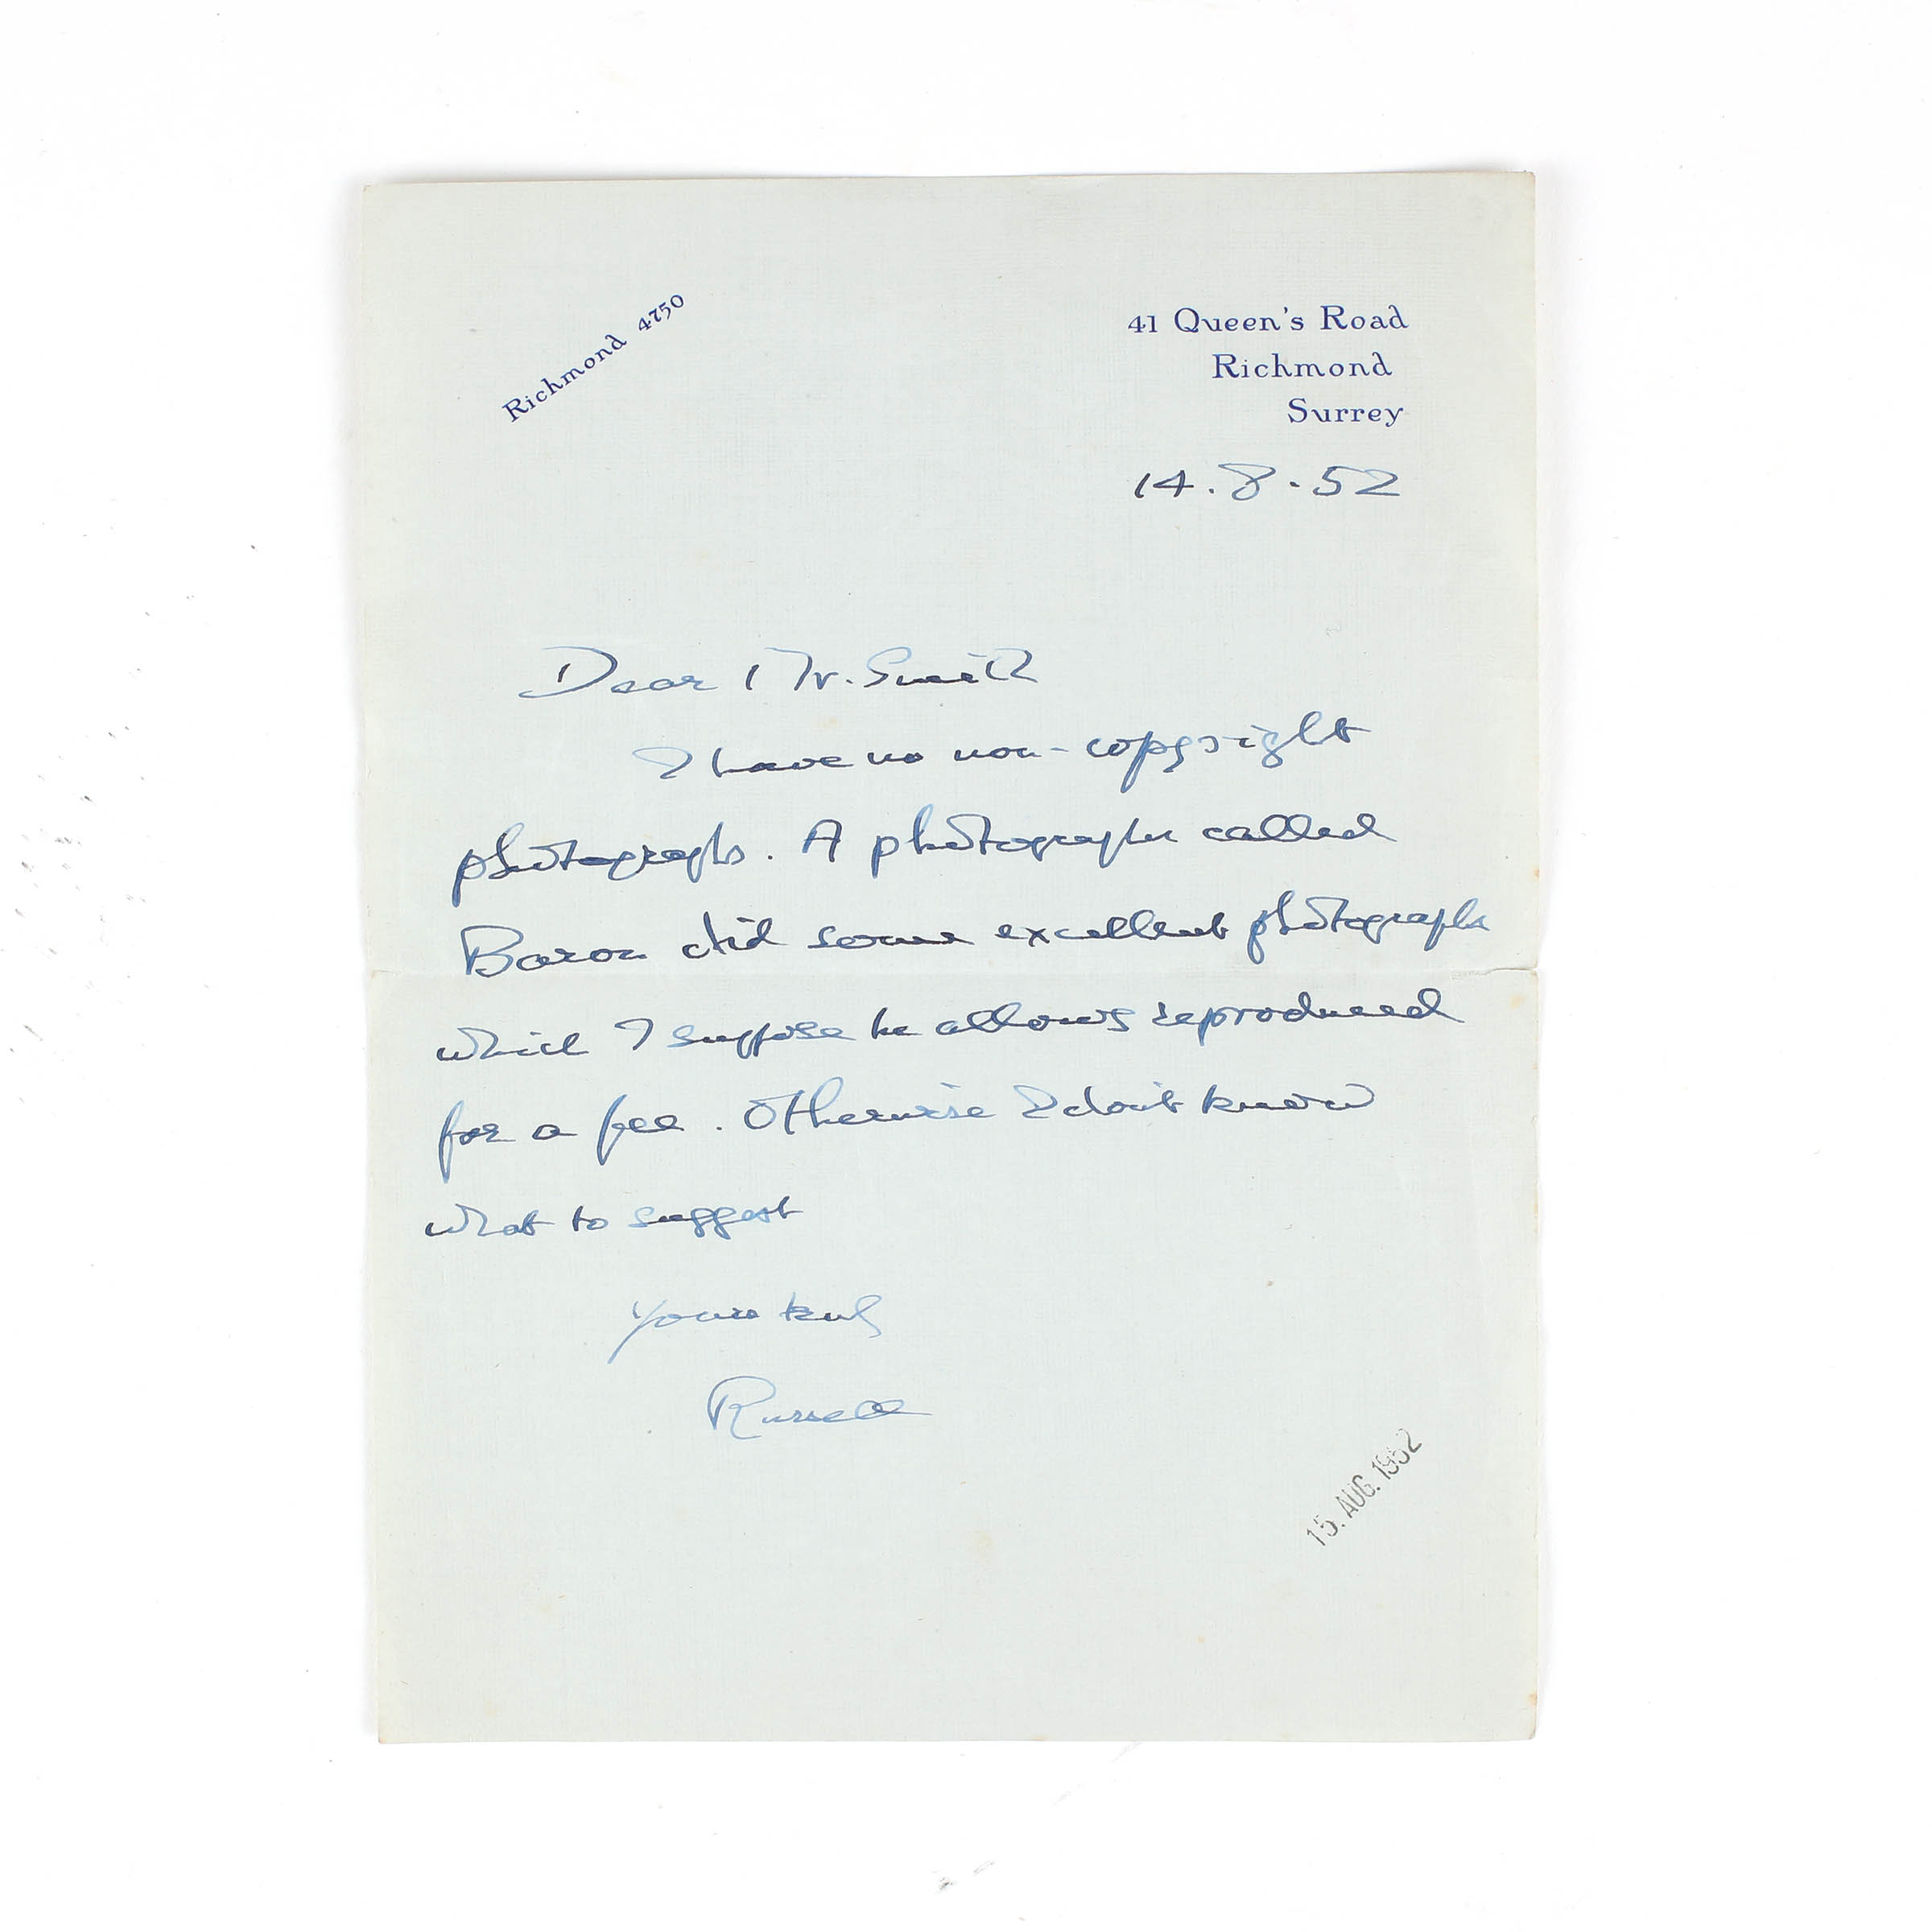 Richmond 4750
41 Queen's Road
Richmond
Surrey
14.8.52
Dear Mr. Smith
I have no non-copyright
photographs. A photographer called
Baron did some excellent photographs
which I suppose he allows reproduced
for a fee. Otherwise I don't know
what to suggest
Yours truly
Russell
15. AUG. 1952